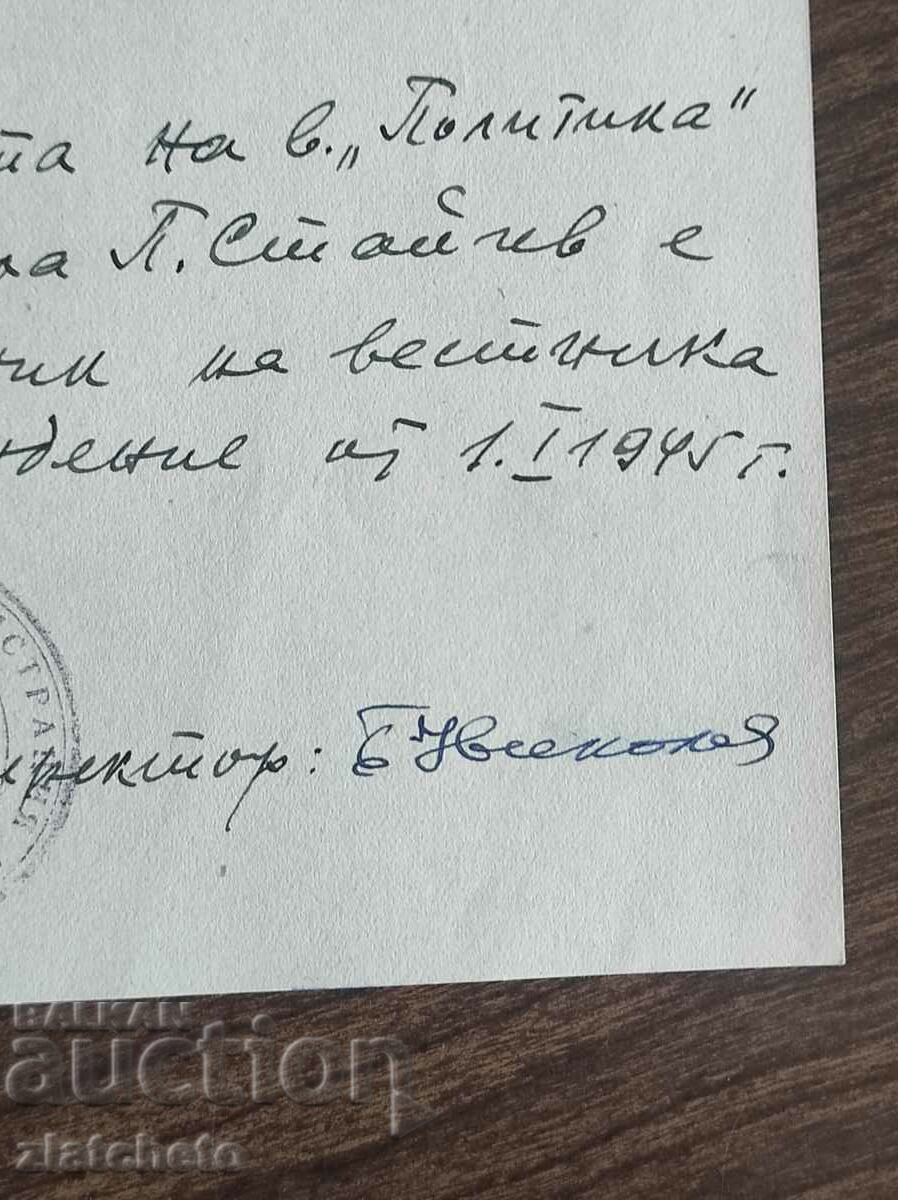 та на в. „Политика"
на П. Стайчев е
чик на вестника
ждение от 1. I 1945 г.
ИСТРАЦИЯ
иректор:
BALKAN
auction
zlatcheto